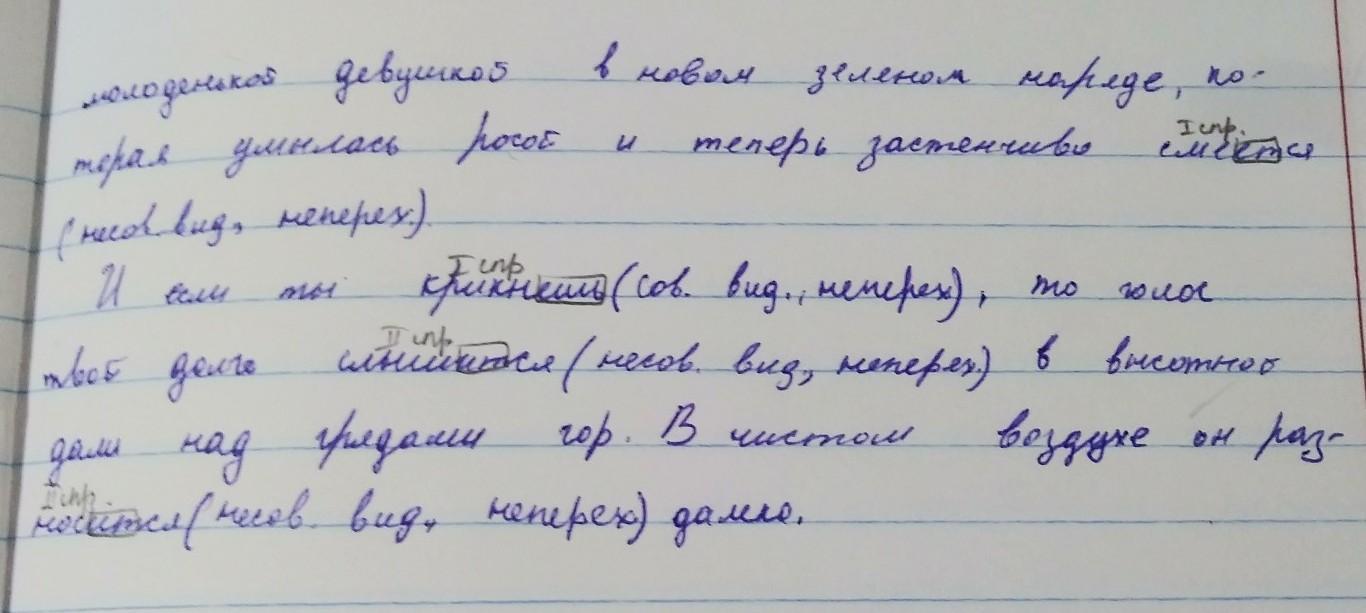 молоденькой девушкой в новом зеленом наряде, ко-
торая умылась росой и теперь застенчиво смеется
I спр.
(несов. вид, неперех.)
И если ты крикнешь (сов. вид., неперех), то голос
I спр
твой долго слышится (несов. вид, неперех.) в высотной
II спр
дали над грядами гор. В чистом воздухе он раз-
носится (несов. вид, неперех) далеко.
II спр.